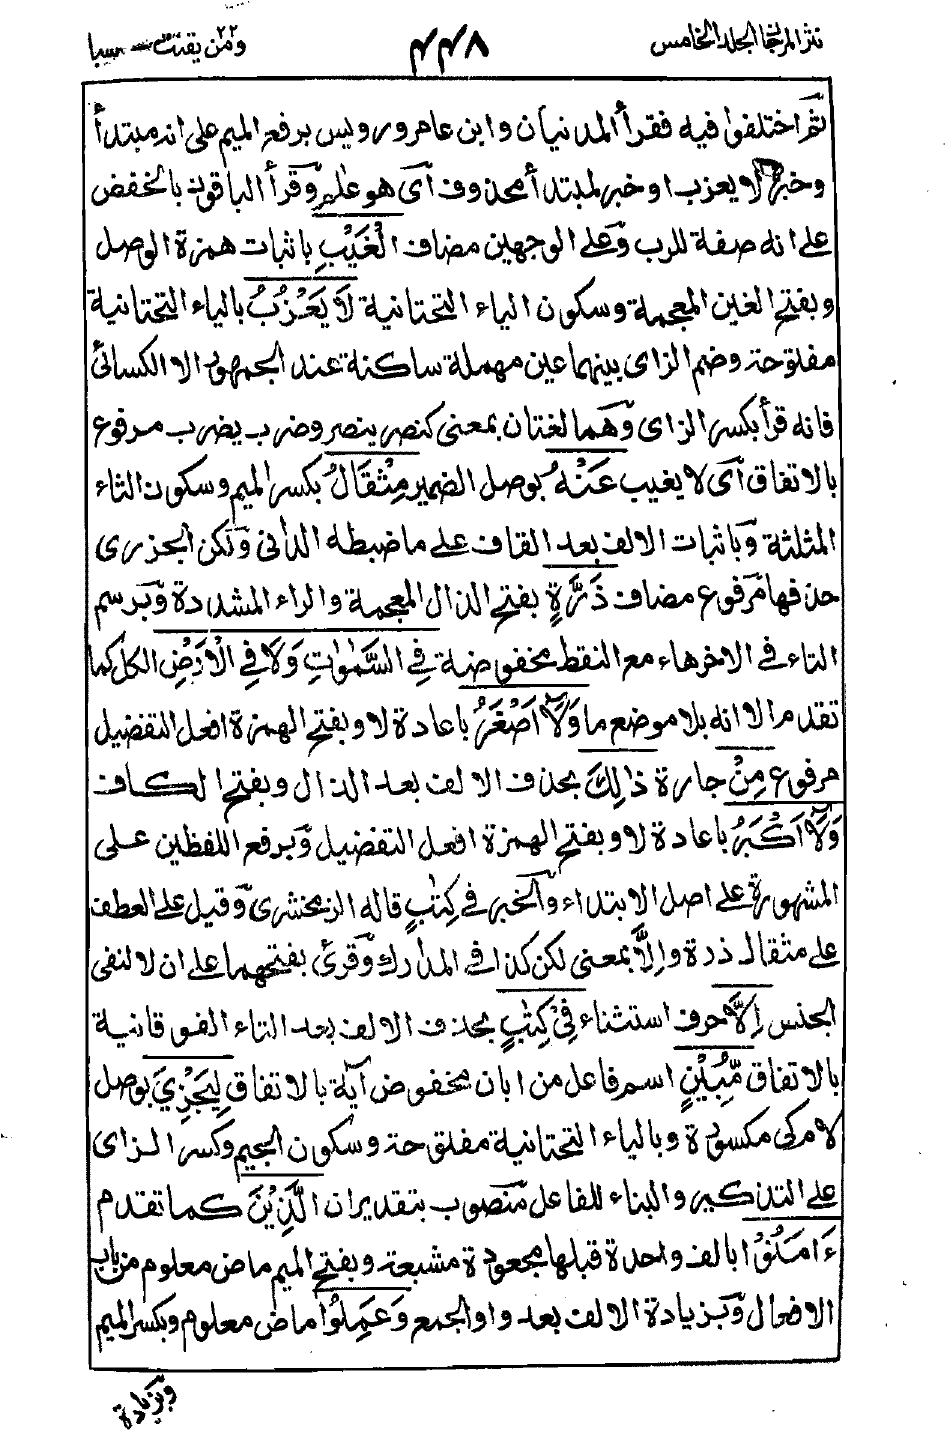 نثر المرجان الجلد الخامس
٤٤٨
ومن يقنت ٢٢ سبا
ثم اختلفوا فيه فقرأ المدنيان وابن عامر ورويس برفع الميم على انه مبتدأ
وخبره لا يعزب او خبر لمبتدأ محذوف آى هو علم وقرأ الباقون بالخفض
على انه صفة للرب وعلى الوجهين مضاف الْغَيْبِ باثبات همزة الوصل
وبفتح الغين المعجمة وسكون الياء التحتانية لَا يَعْزُبُ بالياء التحتانية
مفتوحة وضم الزاى بينهما عين مهملة ساكنة عند الجمهور الا الكسائى
فانه قرأ بكسر الزاى وهما لغتان بمعنى كنصر ينصر وضرب يضرب مرفوع
بالاتفاق آى لا يغيب عَنْهُ بوصل الضمير مِثْقَالُ بكسر الميم وسكون الثاء
المثلثة وباثبات الالف بعد القاف على ما ضبطه الدانى ولكن الجزرى
حذفها مرفوع مضاف ذَرَّةٍ بفتح الذال المعجمة والراء المشددة وبرسم
التاء فى الاخر هاء مع النقط مخفوضة فِي السَّمٰوٰتِ وَلَا فِي الْاَرْضِ الكل كما
تقدم الا انه بلا موضع ما وَلَآ اَصْغَرُ باعادة لا وبفتح الهمزة افعل التفضيل
مرفوع مِنْ جارة ذٰلِكَ بحذف الالف بعد الذال وبفتح الكاف
وَلَآ اَكْبَرُ باعادة لا وبفتح الهمزة افعل التفضيل وبرفع اللفظين على
المشهورة على اصل الابتداء والخبر فى كِتٰبٍ قاله الزمخشرى وقيل على العطف
على مثقال ذرة واِلَّا بمعنى لكن كذا فى المدارك وقرئ بفتحهما على ان لا لنفى
الجنس اِلَّا حرف استثناء فِيْ كِتٰبٍ بحذف الالف بعد التاء الفوقانية
بالاتفاق مُّبِيْنٍ اسم فاعل من ابان مخفوض آية بالاتفاق لِيَجْزِيَ بوصل
لام كى مكسورة وبالياء التحتانية مفتوحة وسكون الجيم وكسر الزاى
على التذكير والبناء للفاعل منصوب بتقدير ان الَّذِيْنَ كما تقدم
ءَامَنُوْا بالف واحدة قبلها مجعودة مشبعة وبفتح الميم ماض معلوم من باب
الافعال وبزيادة الالف بعد واو الجمع وَعَمِلُوا ماض معلوم وبكسر الميم
وبزيادة